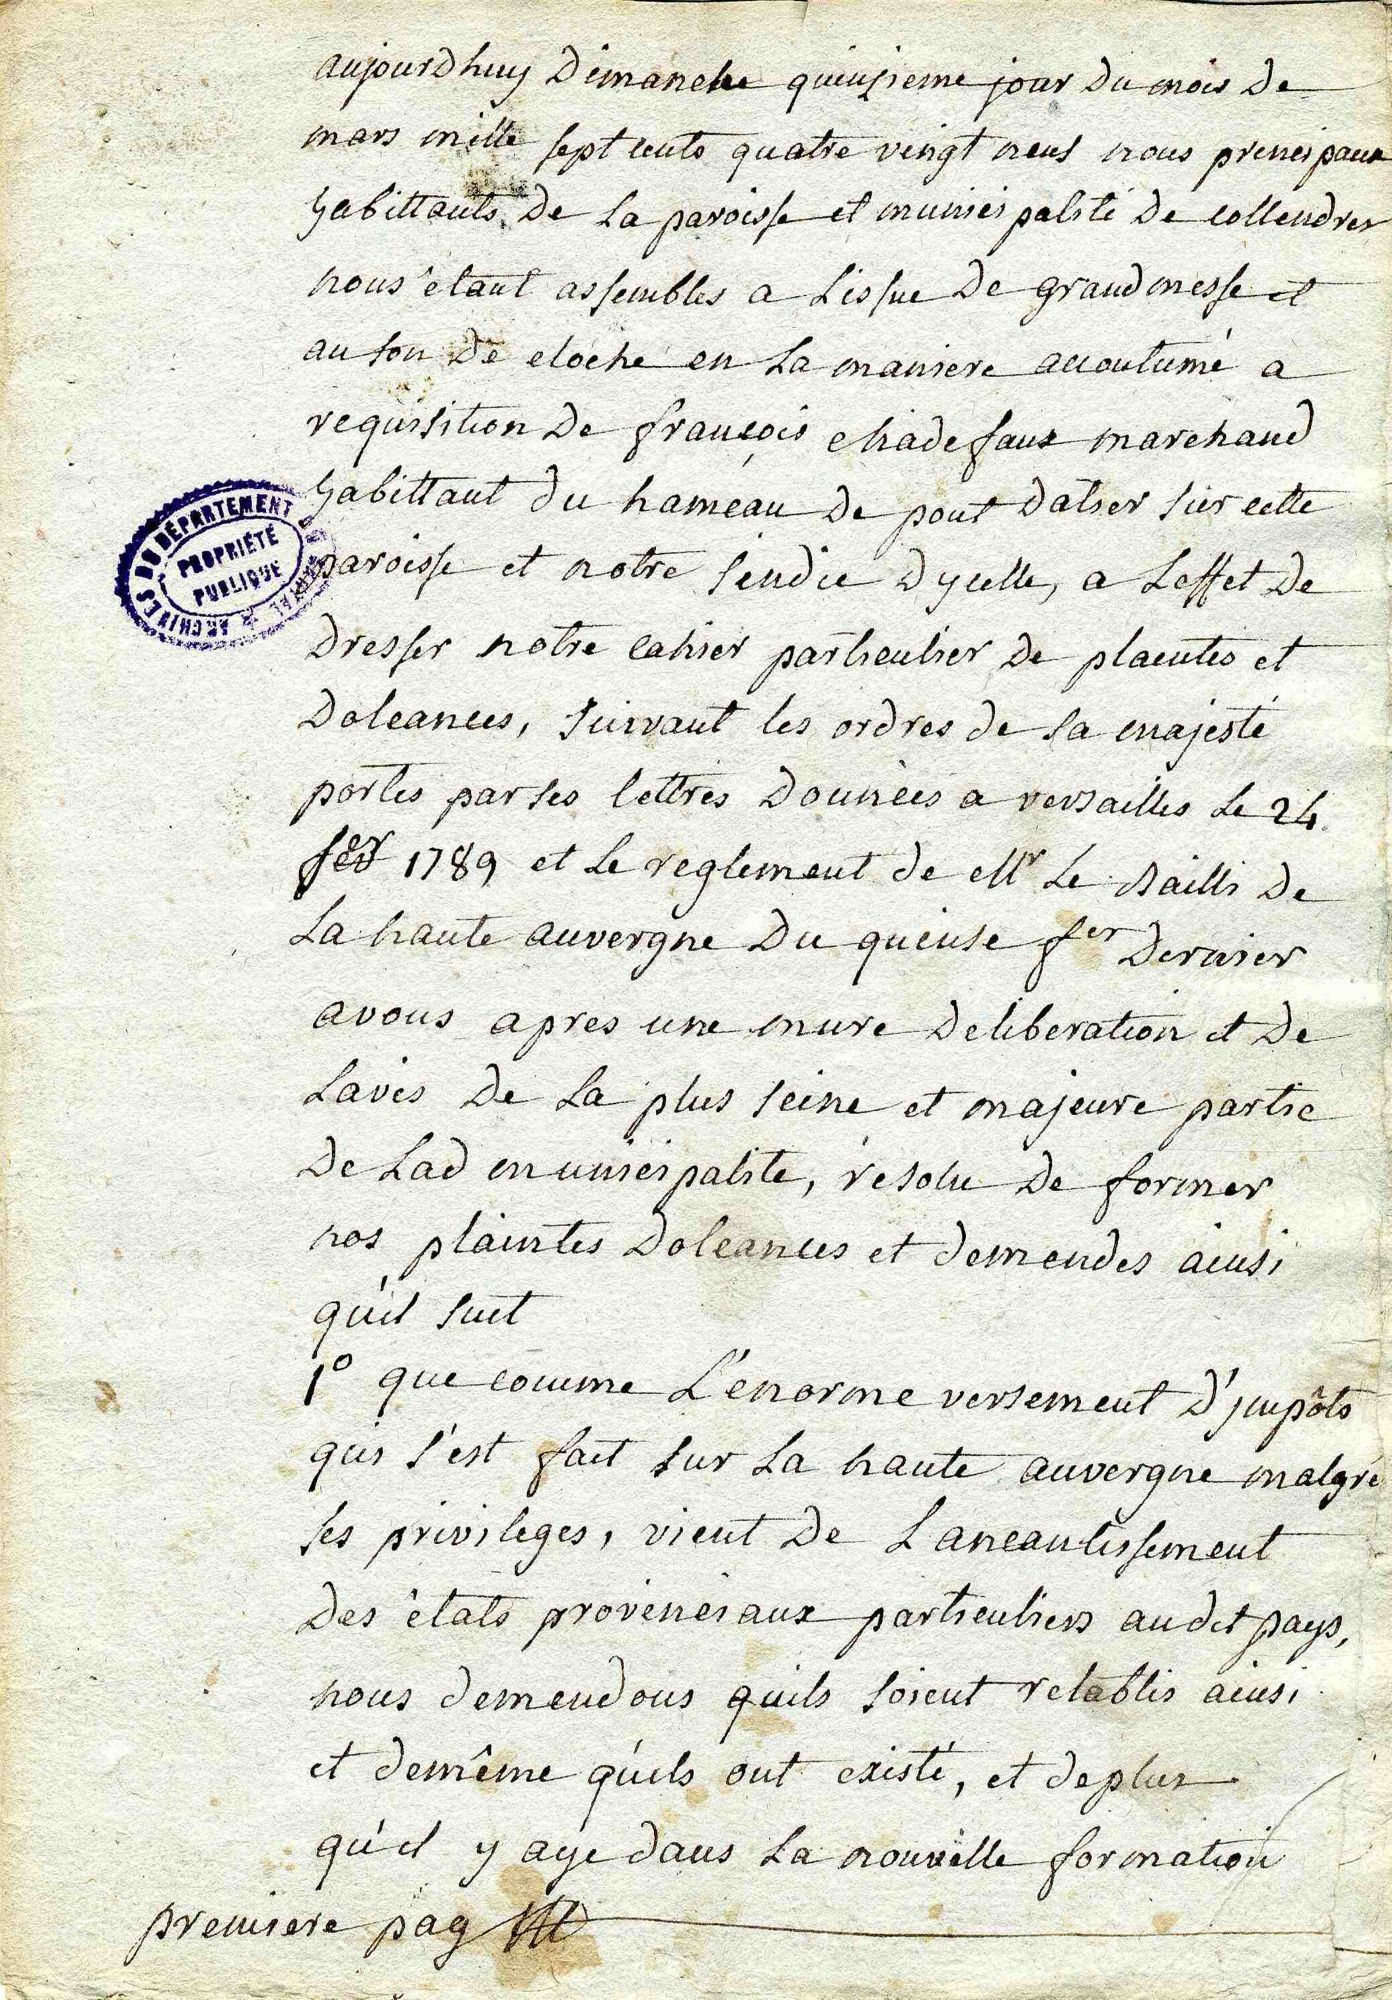 aujourdhuy Dimanche quinzieme jour du mois de
mars mille sept cents quatre vingt neuf nous principaux
habittants de la paroisse et municipalité de collendres
nous étant assemblés a lissue de grandmesse et
au son de cloche en la maniere accoutumé a
requisition de françois chadefaux marchand
habittant du hameau de pont datier sur cette
paroisse et notre sindic dycelle, a leffet de
dresser notre cahier particulier de plaintes et
doleances, suivant les ordres de sa majesté
portés par ses lettres données a versailles le 24
fer 1789 et le reglement de Mr le Bailli de
la haute auvergne du quinse fer dernier
avons apres une mure deliberation et de
lavis de la plus seine et majeure partie
de lad municipalité, résolu de former
nos plaintes doleances et demendes ainsi
qu'il suit
1° que comme l'enorme versement d'jmpôts
qui s'est fait sur la haute auvergne malgré
ses privileges, vient de laneantissement
des états provinciaux particuliers audit pays,
nous demendons quils soient retablis ainsi
et demême qu'ils ont existé, et deplus
qu'il y aye dans la nouvelle formation
premiere pag
ARCHIVES DU DÉPARTEMENT DU CANTAL
PROPRIÉTÉ
PUBLIQUE